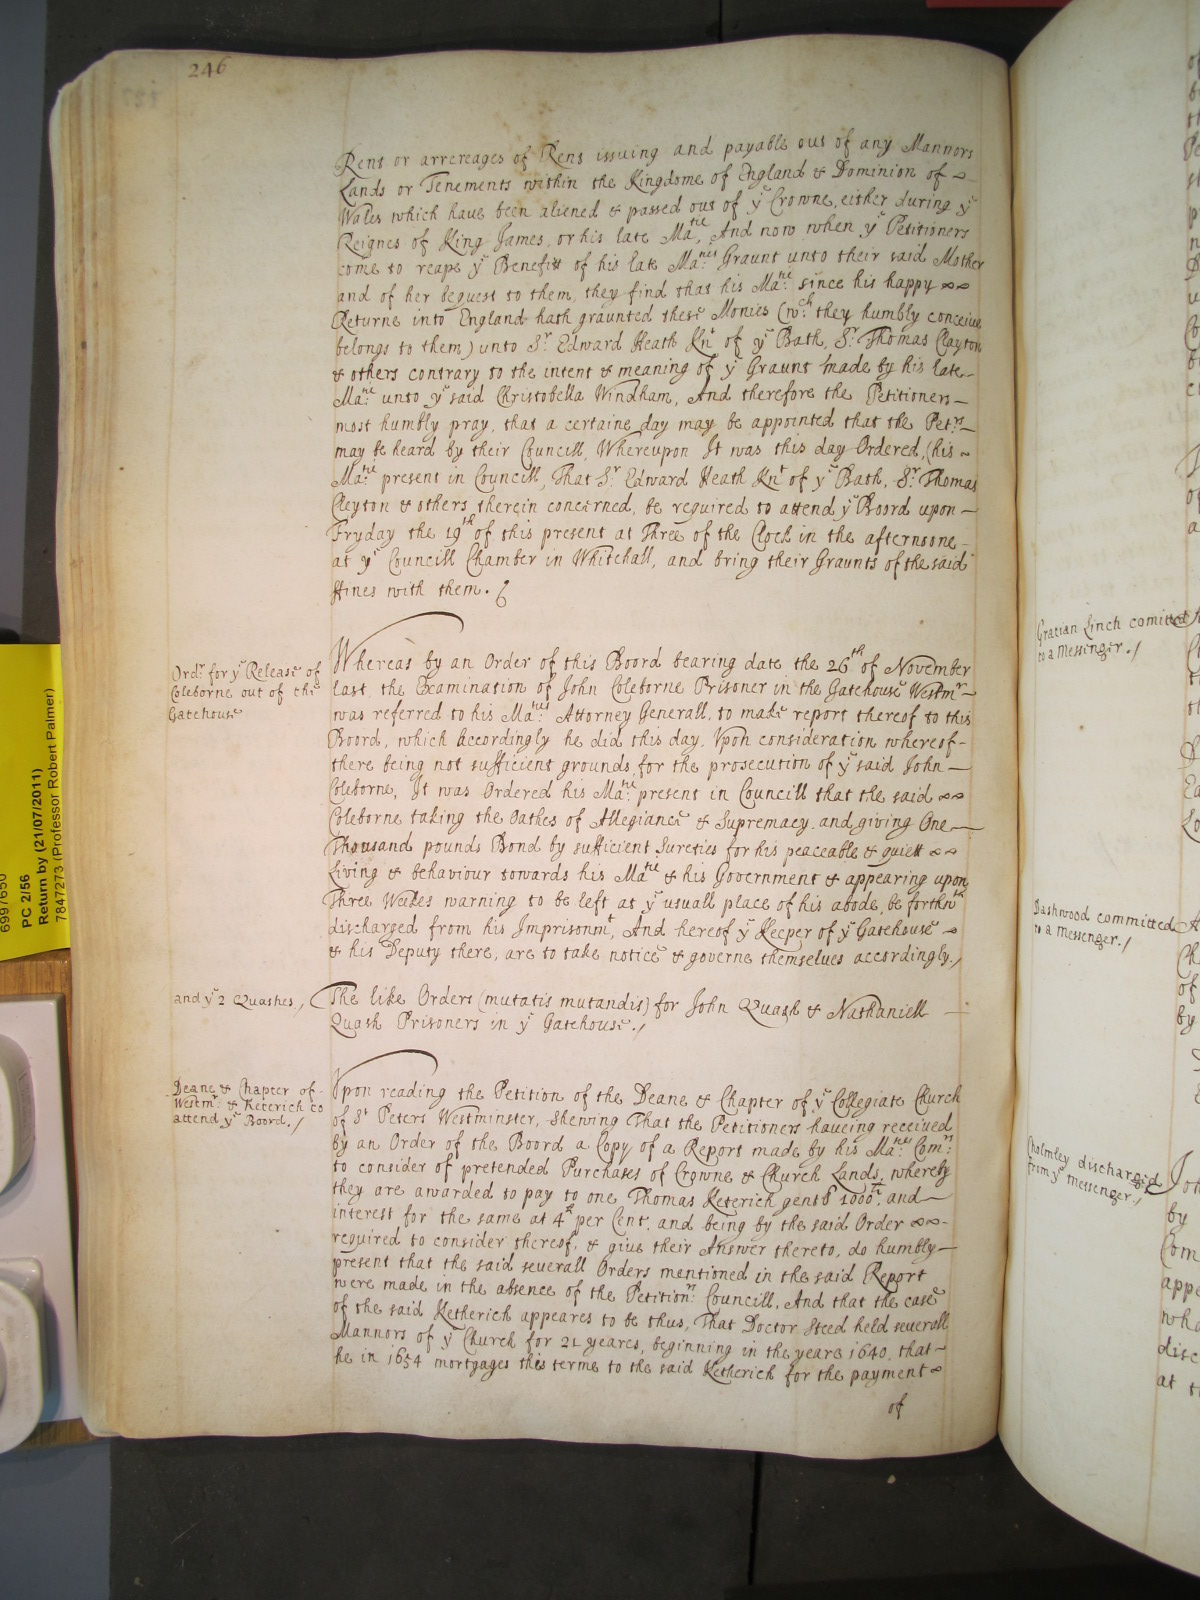 246
Rent or arrereages of Rent issuing and payable out of any Mannors
Lands or Tenements within the Kingdome of England & Dominion of
Wales which have been aliened & passed out of yͤ Crowne, either during yͤ
Reignes of King James, or his late Maᵗⁱᵉ, And now when yͤ Petitioners
come to reape yͤ Benefitt of his late Maᵗⁱᵉˢ Graunt unto their said Mother
and of her bequest to them, they find that his Maᵗⁱᵉ since his happy
Returne into England hath graunted these Monies (wᶜʰ they humbly conceive
belongs to them) unto Sʳ Edward Heath Knᵗ of yͤ Bath, Sʳ Thomas Clayton
& others contrary to the intent & meaning of yͤ Graunt made by his late
Maᵗⁱᵉ unto yͤ said Christobella Windham, And therefore the Petitioners
most humbly pray, that a certaine day may be appointed that the Petʳˢ
may be heard by their Councill, Whereupon It was this day Ordered, (his
Maᵗⁱᵉ present in Councill, That Sʳ Edward Heath Knᵗ of yͤ Bath, Sʳ Thomas
Cleyton & others therein concerned, be required to attend yͤ Boord upon
Fryday the 19ᵗʰ of this present at Three of the Clock in the afternoone
at yͤ Councill Chamber in Whitehall, and bring their Graunts of the said
ffines with them.
Ordʳ for yͤ Release of
Coleborne out of the
Gatehouse
Whereas by an Order of this Boord bearing date the 26ᵗʰ of November
last, the Examination of John Coleborne Prisoner in the Gatehouse Westmʳ
was referred to his Maᵗⁱᵉˢ Attorney Generall, to make report thereof to this
Boord, which accordingly he did this day. Vpon consideration whereof
there being not sufficient grounds for the prosecution of yͤ said John
Coleborne, It was Ordered his Maᵗⁱᵉ present in Councill that the said
Coleborne taking the Oathes of Allegiance & Supremacy, and giving One
Thousand pounds Bond by sufficient Sureties for his peaceable & quiett
Living & behaviour towards his Maᵗⁱᵉ & his Government & appearing upon
Three Weekes warning to be left at yͤ usuall place of his abode, be forthwᵗʰ
discharged from his Imprisonmᵗ, And hereof yͤ Keeper of yͤ Gatehouse
& his Deputy there, are to take notice & governe themselves accordingly./
and yͤ 2 Quashes./
The like Orders (mutatis mutandis) for John Quash & Nathaniell
Quash Prisoners in yͤ Gatehouse./
Deane & Chapter of
Westmʳ & Keterich to
attend yͤ Boord./
Vpon reading the Petition of the Deane & Chapter of yͤ Collegiate Church
of Sᵗ Peters Westminster, shewing That the Petitioners haveing received
by an Order of the Boord a Copy of a Report made by his Maᵗⁱᵉˢ Comʳˢ
to consider of pretended Purchases of Crowne & Church Lands, whereby
they are awarded to pay to one Thomas Keterich gent 1000ˡⁱ, and
interest for the same at 4ˡⁱ per Cent. and being by the said Order
required to consider thereof, & give their Answer thereto, do humbly
present that the said severall Orders mentioned in the said Report
were made in the absence of the Petitionʳˢ Councill, And that the case
of the said Ketherich appeares to be thus, That Doctor Steed held severall
Mannors of yͤ Church for 21 yeares, beginning in the yeare 1640, that
he in 1654 mortgages this terme to the said Ketherich for the payment
of
Gratian Linch comitted
to a Messenger./
Dashwood committed
to a Messenger./
Cholmley discharged
from yͤ messenger./
PC 2/56
Return by (21/07/2011)
7847273 (Professor Robert Palmer)